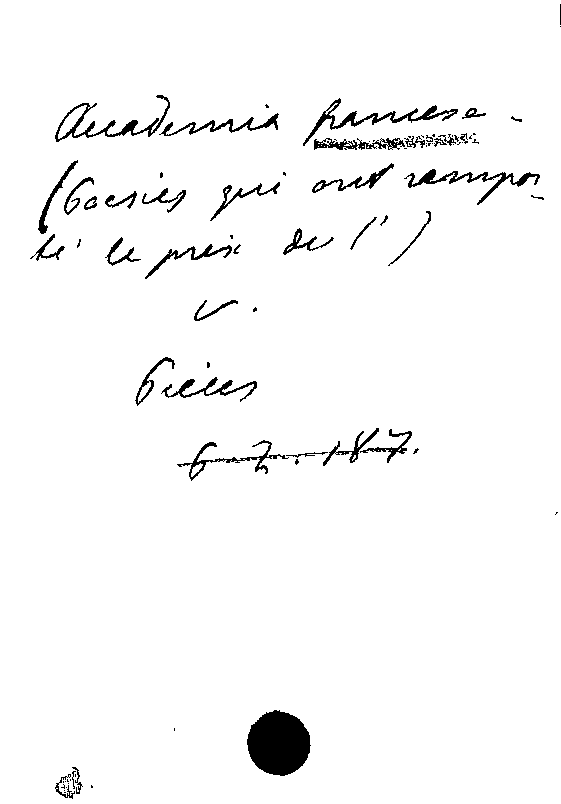 Accademia francese -
(Poesies qui ont rempor-
té le prix de l')
v.
Pièces
6 - 7. 187.